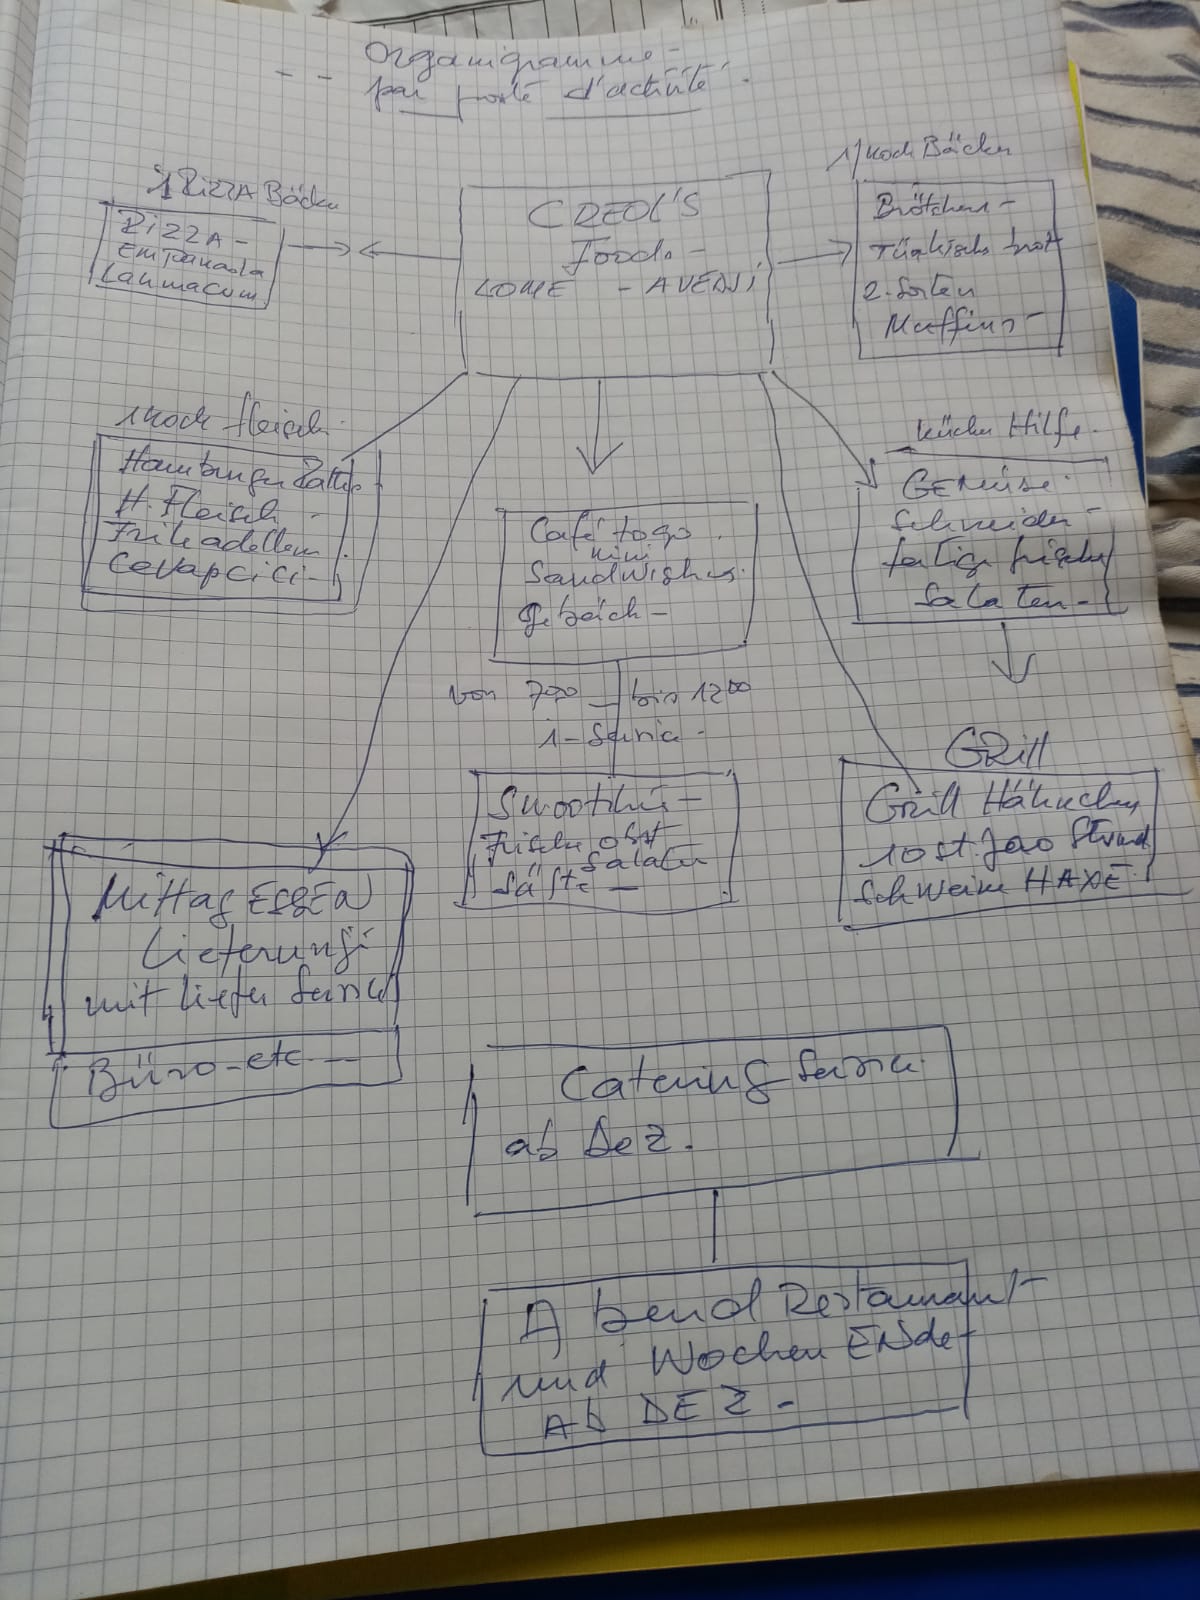 Organigramme -
par poste d'activité.
1 PizzA Bäcker
PizzA -
Empanada
Lahmacum
CREOL'S
Foods -
LOME - AVEDJI
1 Koch Bäcker
Brötchen -
Türkisch brot
2. Sorten
Muffins -
1 Koch fleisch.
Hamburger Pattis
H. Fleisch -
Frikadellen.
Cevapcici -
Café to go.
mini
Sandwishes.
Gebäck -
von 700 bis 1200
1 - Service -
Smoothis -
Frische obst
Salaten
Säfte -
Küchen Hilfe.
GEMüse.
Schneiden -
fertig frische
Salaten -
GRill
Grill Hähnchen
10 st. pro Stund
Schweine HAXE
MittagESSEN
Lieferung
mit liefer Service
Büro - etc -
Catering Service.
ab Dez.
Abend Restaurant -
und Wochen ENde -
Ab DEZ -